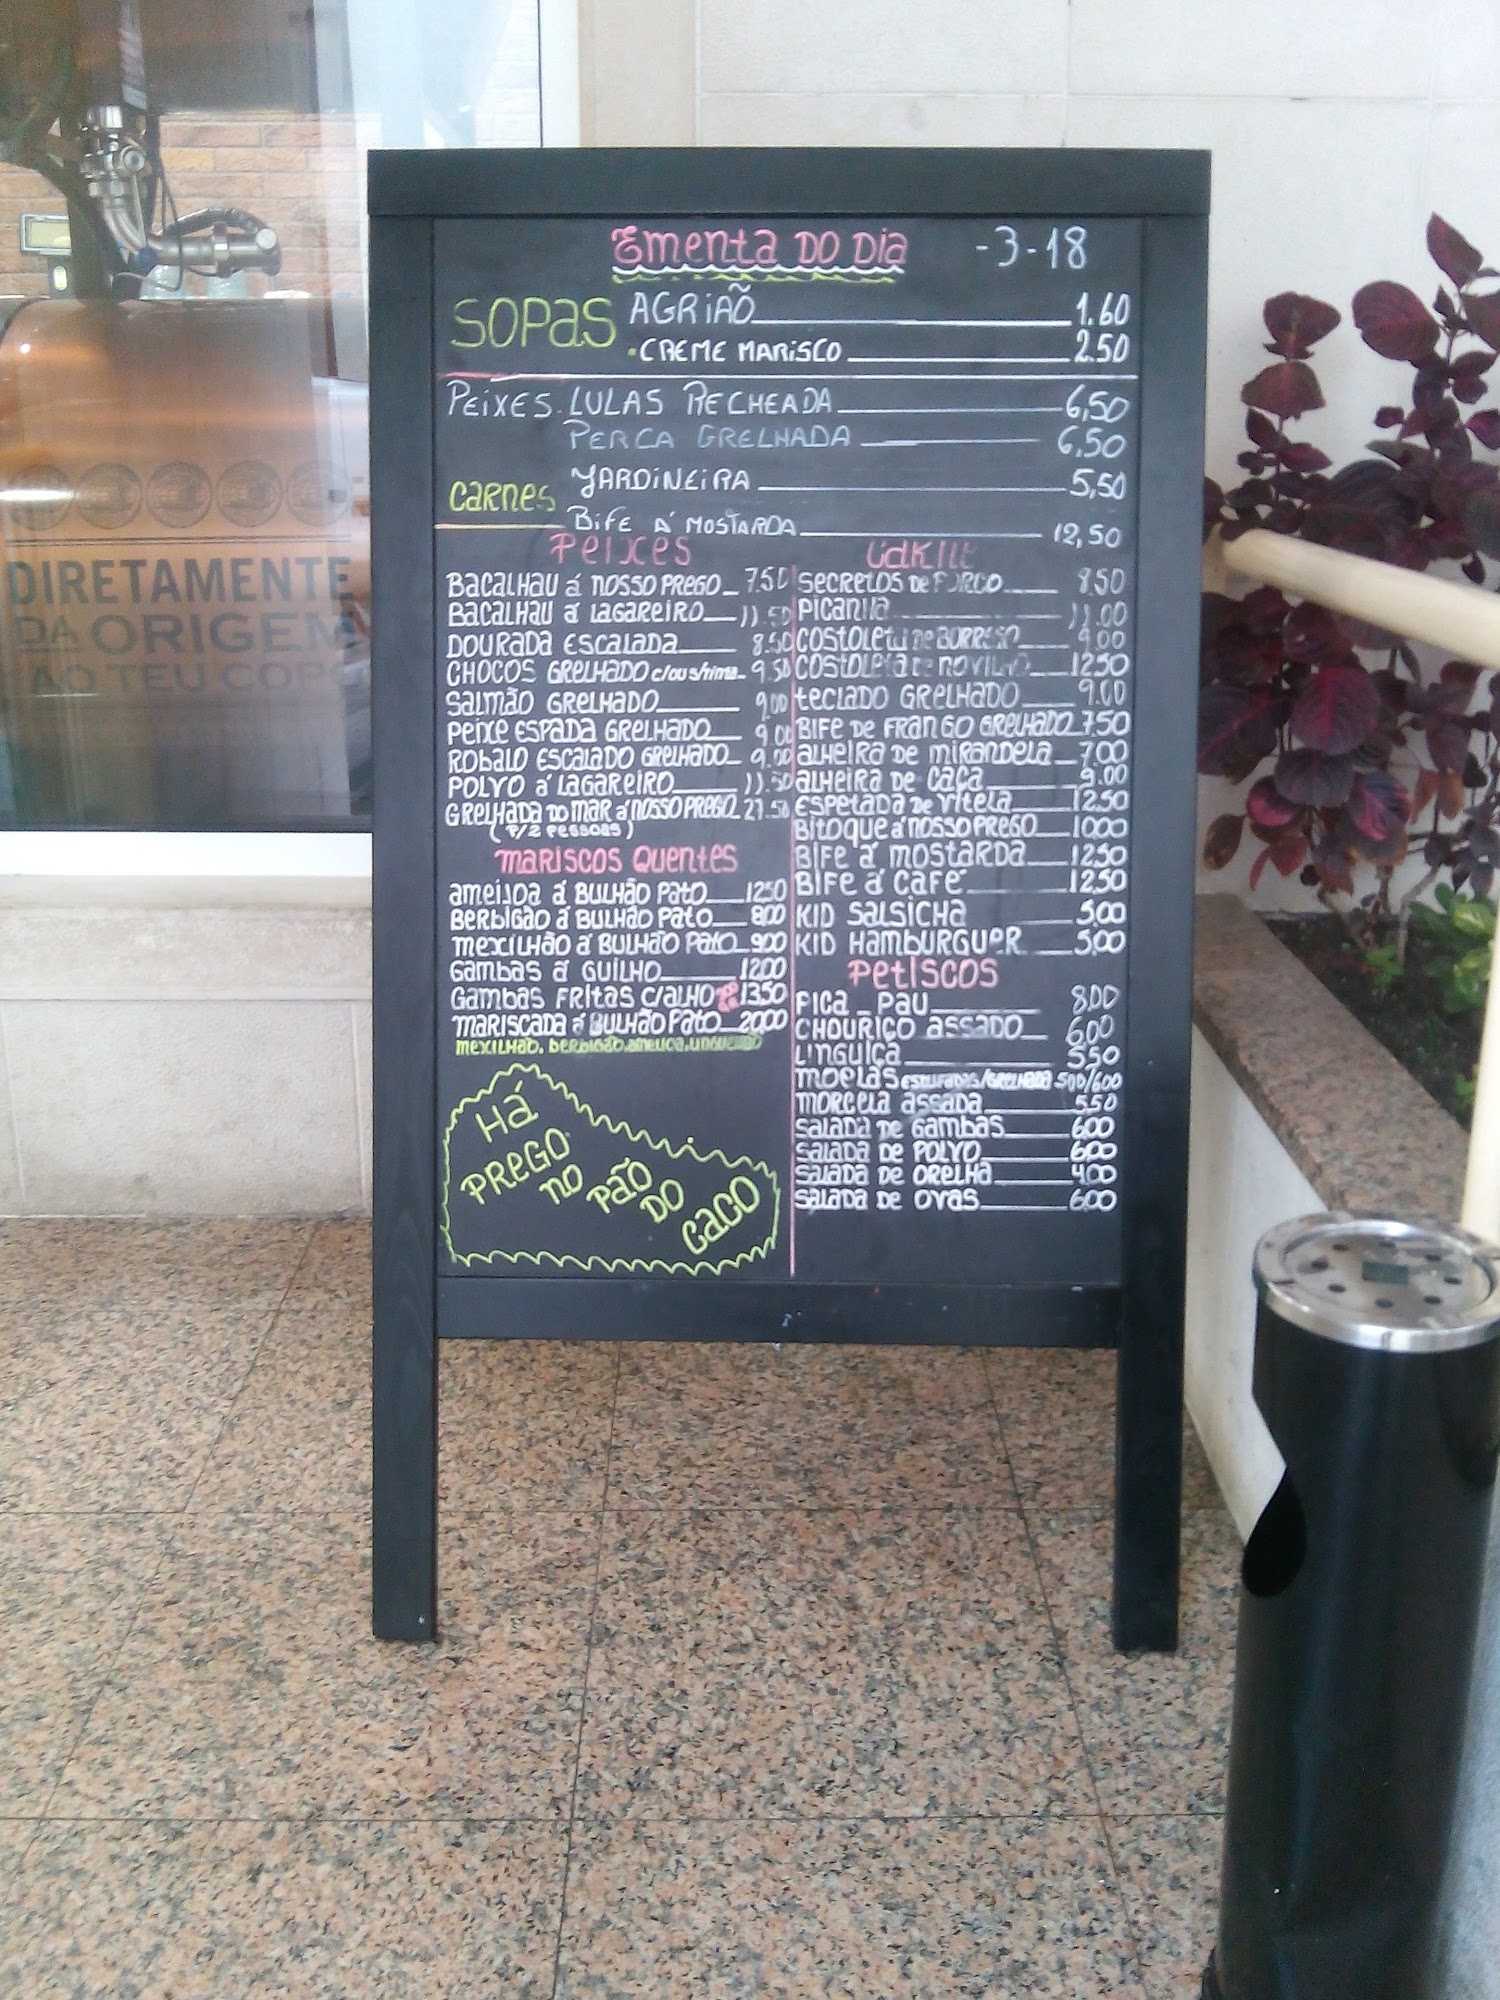 Ementa do Dia -3-18
Sopas Agrião 1.60
.Creme Marisco 2.50
Peixes. Lulas Recheada 6,50
Perca Grelhada 6,50
Carnes Jardineira 5,50
Bife á Mostarda 12,50
Peixes
Bacalhau á nosso prego 7.50
Bacalhau á lagareiro 11.50
Dourada escalada 8.50
Chocos grelhado c/ou s/tinta 9.50
Salmão grelhado 9.00
Peixe espada grelhado 9.00
Robalo escalado grelhado 9.00
Polvo á lagareiro 11.50
Grelhada do mar á nosso prego 27.50
(P/2 pessoas)
Mariscos Quentes
Ameijoa á Bulhão Pato 12.50
Berbigão á Bulhão Pato 8.00
Mexilhão á Bulhão Pato 9.00
Gambas á Guilho 12.00
Gambas fritas c/alho 13.50
Mariscada á Bulhão Pato 20.00
Mexilhão, berbigão,
Há
prego
no pão
do caco
Secretos de Porco 8.50
Picanha 11.00
Costoleta de Borrego 9.00
Costoleta de novilho 12.50
Teclado grelhado 9.00
Bife de frango grelhado 7.50
Alheira de Mirandela 7.00
Alheira de caça 9.00
Espetada de vitela 12.50
Bitoque á nosso prego 10.00
Bife á mostarda 12.50
Bife á café 12.50
Kid salsicha 5.00
Kid hamburguer 5.00
Petiscos
Pica_Pau 8.00
Chouriço assado 6.00
Linguiça 5.50
Moelas estufadas/grelhada 5.00/6.00
Morcela assada 5.50
Salada de gambas 6.00
Salada de polvo 6.00
Salada de orelha 4.00
Salada de ovas 6.00
DIRETAMENTE
DA ORIGEM
AO TEU COPO